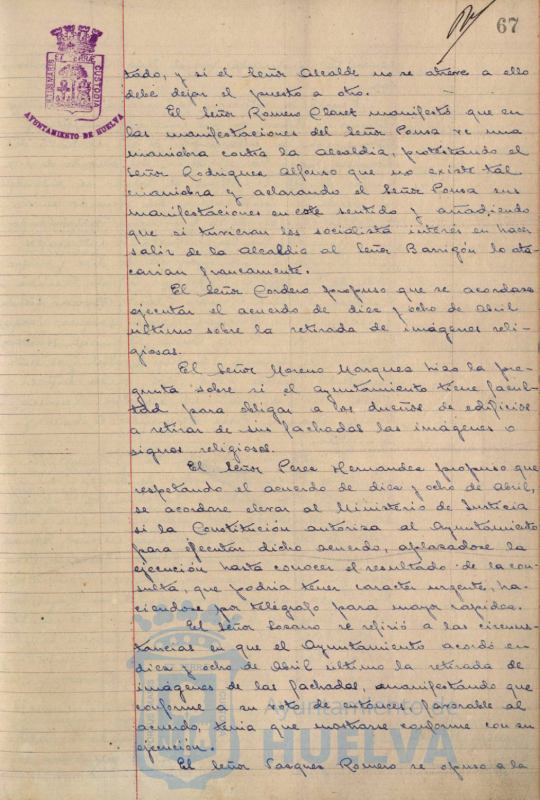 67
PORTUS MARIS ET TERRAE CUSTODIA
AYUNTAMIENTO DE HUELVA
tado, y si el Señor Alcalde no se atreve a ello
debe dejar el puesto a otro.
El Señor Romero Claret manifestó que en
las manifestaciones del Señor Ponsa ve una
maniobra contra la Alcaldia, protestando el
Señor Rodriguez Alfonso que no existe tal
maniobra y aclarando el Señor Ponsa sus
manifestaciones en este sentido y añadiendo
que si tuvieran los socialista interés en hacer
salir de la Alcaldia al Señor Barrigón lo ata-
carian francamente.
El Señor Cordero propuso que se acordase
ejecutar el acuerdo de diez y ocho de Abril
último sobre la retirada de imágenes reli-
giosas.
El Señor Moreno Marquez hizo la pre-
gunta sobre si el ayuntamiento tiene facul-
tad para obligar a los dueños de edificios
a retirar de sus fachadas las imágenes o
signos religiosos.
El Señor Perez Hernandez propuso que
respetando el acuerdo de diez y ocho de Abril,
se acordare elevar al Ministerio de Justicia
si la Constitución autoriza al Ayuntamiento
para ejecutar dicho acuerdo, aplazandose la
ejecución hasta conocer el resultado de la con-
sulta, que podria tener caracter urgente, ha-
ciendose por telégrafo para mayor rapidez.
El Señor Lozano se refirió a las circuns-
tancias en que el Ayuntamiento acordó en
diez y ocho de Abril último la retirada de
imágenes de las fachadas, manifestando que
conforme a su voto de entonces favorable al
acuerdo, tenia que mostrarse conforme con su
ejecución.
El Señor Vazquez Romero se opuso a la
Ayuntamiento de
HUELVA